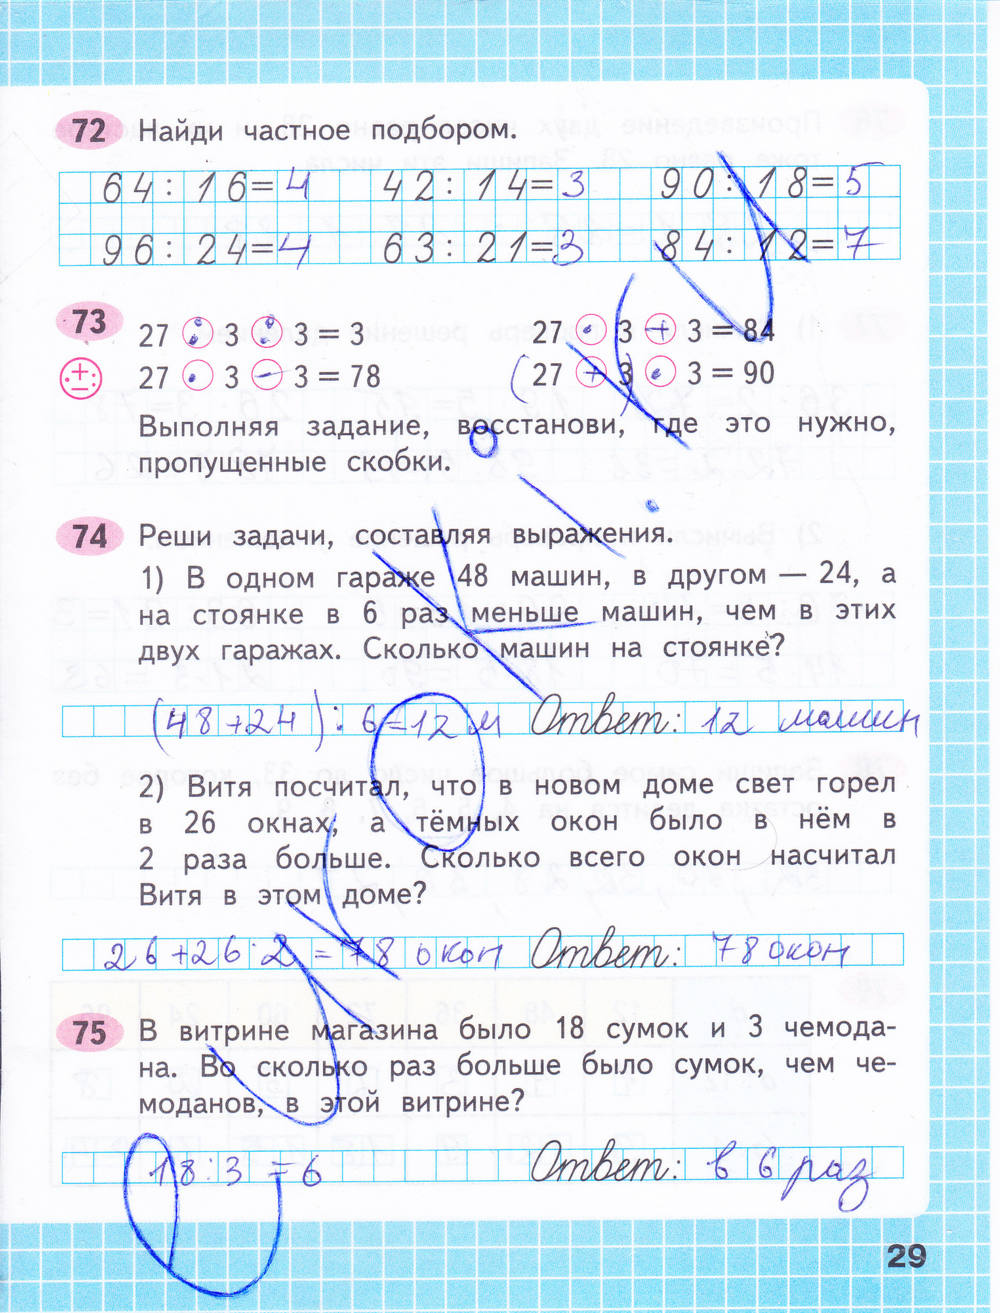 72 Найди частное подбором.
64:16=4 42:14=3 90:18=5
96:24=4 63:21=3 84:12=7
73 27 : 3 : 3 = 3 27 · 3 + 3 = 84
27 · 3 - 3 = 78 (27 + 3) · 3 = 90
Выполняя задание, восстанови, где это нужно,
пропущенные скобки.
74 Реши задачи, составляя выражения.
1) В одном гараже 48 машин, в другом — 24, а
на стоянке в 6 раз меньше машин, чем в этих
двух гаражах. Сколько машин на стоянке?
(48+24):6=12 м Ответ: 12 машин
2) Витя посчитал, что в новом доме свет горел
в 26 окнах, а тёмных окон было в нём в
2 раза больше. Сколько всего окон насчитал
Витя в этом доме?
26+26·2=78 окон Ответ: 78 окон
75 В витрине магазина было 18 сумок и 3 чемода-
на. Во сколько раз больше было сумок, чем че-
моданов, в этой витрине?
18:3=6 Ответ: в 6 раз
29